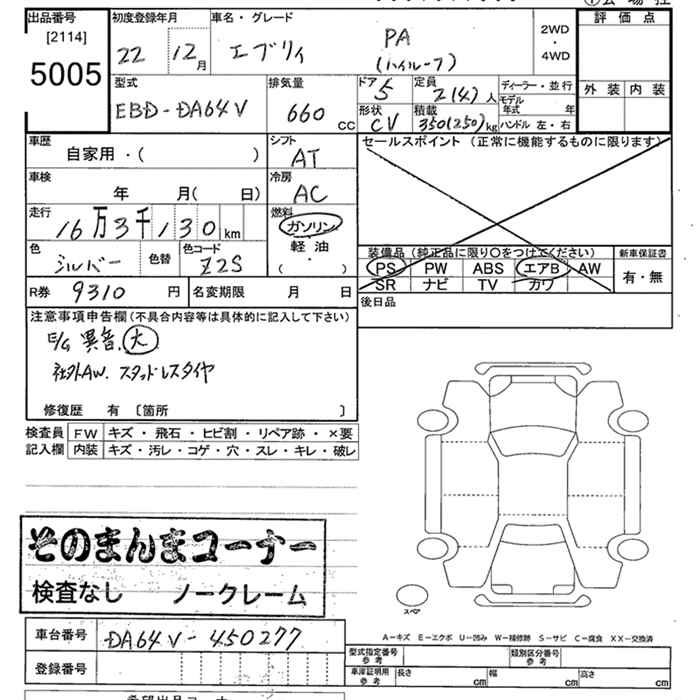 出品番号 初度登録年月 車名・グレード 評価点
[2114]
5005
22 12月 エブリィ PA (ハイルーフ) 2WD・4WD
型式 排気量 ドア 定員 ディーラー・並行 外装 内装
EBD-DA64V 660cc 5 2(4)人 モデル年式 年
形状 積載 ハンドル 左・右
CV 350(250)kg
車歴 シフト セールスポイント(正常に機能するものに限ります)
自家用・( ) AT
車検 冷房
年 月( 日) AC
走行 燃料
16万3千130km ガソリン
軽油
( ・ )
色 色替 色コード
シルバー Z2S
装備品(純正品に限り○をつけてください) 新車保証書
PS PW ABS エアB AW 有・無
SR ナビ TV カワ
R券 9310円 名変期限 月 日 後日品
注意事項申告欄(不具合内容等は具体的に記入して下さい)
E/G 異音.大
社外AW. スタッドレスタイヤ
修復歴 有 〔箇所 〕
検査員 FW キズ・飛石・ヒビ割・リペア跡・×要
記入欄 内装 キズ・汚レ・コゲ・穴・スレ・キレ・破レ
そのまんまコーナー
検査なし ノークレーム
スペア
A-キズ E-エクボ U-凹み W-補修跡 S-サビ C-腐食 XX-交換済
車台番号 DA64V-450277
登録番号
型式指定番号 参考 類別区分番号 参考
車庫証明用 参考 長さ cm 幅 cm 高さ cm
希望出品コーナー